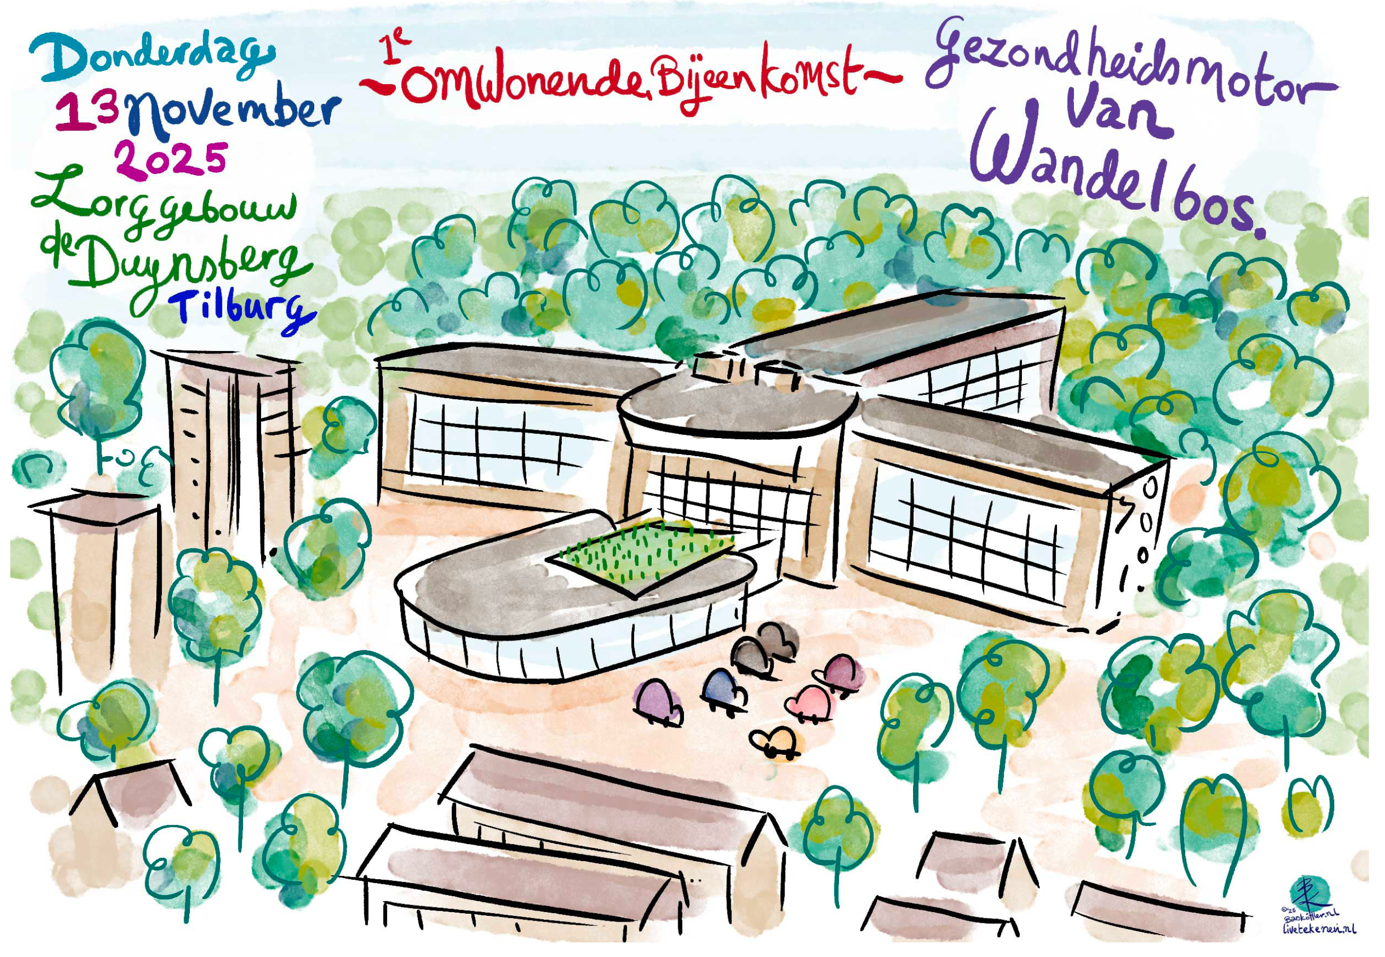 Donderdag
13 November
2025
Zorggebouw
de Duynsberg
Tilburg
1e
~Omwonende Bijeenkomst~
Gezondheidsmotor
van
Wandelbos.
©25
Baskohler.nl
livetekenen.nl